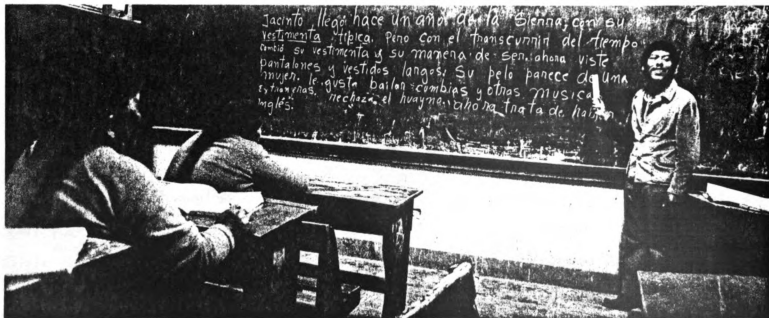 Jacinto llegó hace un año de la Sierra, con su
vestimenta típica. Pero con el transcurrir del tiempo
cambió su vestimenta y su manera de ser. ahora viste
pantalones y vestidos largos. Su pelo parece de una
mujer. le gusta bailar cumbias y otras musica
extranjeras. rechaza el huayno. ahora trata de
inglés.